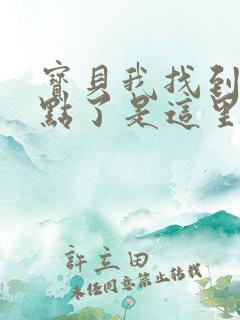 寶貝我找到
點了是這里
許立田
未经同意禁止转载